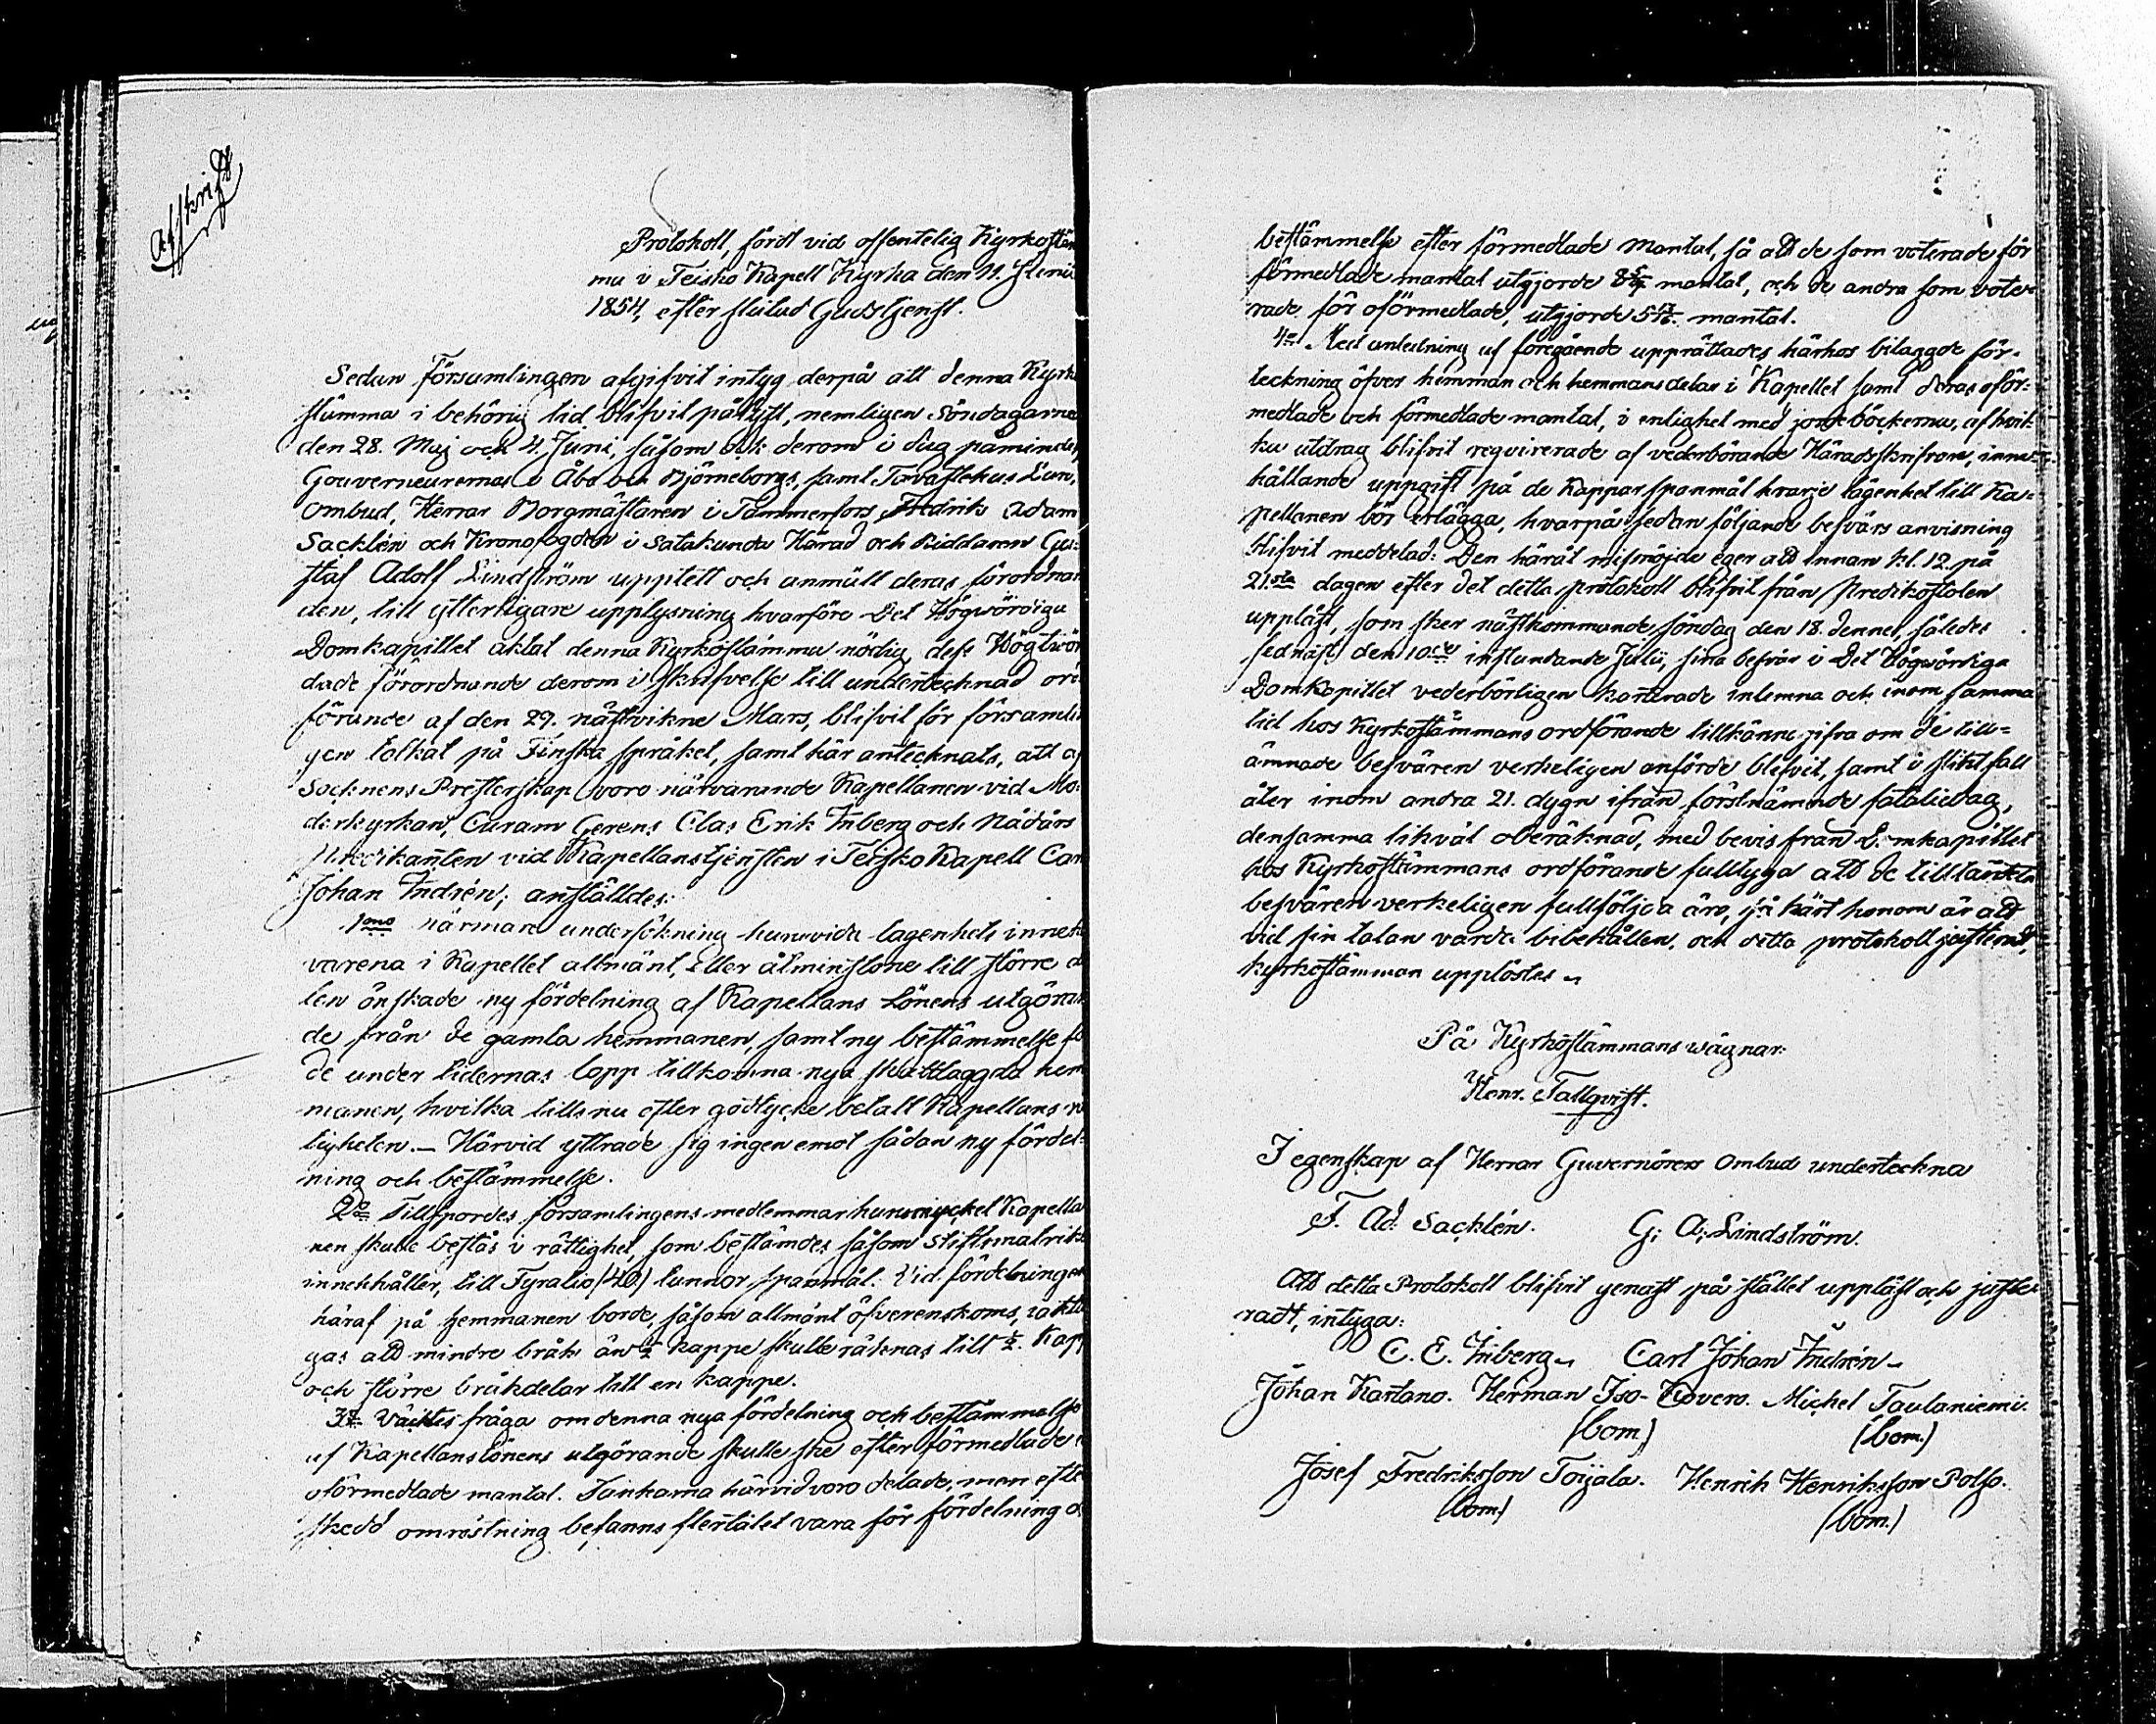 Afskrift
Protokoll, fördt vid offentelig Kyrkostäm
ma i Teisko Kapell Kyrka den 11. Junii
1854, efter slutad Gudstjenst.
Sedan Församlingen afgifvit intyg derpå att denna Kyrko
stämma i behörig tid blifvit pålyst, nemligen Söndagarna
den 28. Maj och 4. Juni, såsom ock derom i dag påmindes,
Gouverneurernas i Åbo och Björneborgs, samt Tavastehus Län,
ombud, Herrar Borgmästaren i Tammerfors Fredrik Adam
Sacklén och Kronofogden i Satakunda Härad och Riddaren Gu-
staf Adolf Lindström upptett och anmält deras förordnan
den, till ytterligare upplysning hvarföre Det Högvördiga
Domkapitlet aktat denna Kyrkostämma nödig, dess Högtvör
dade förordnande derom i skrifvelse till undertecknad ord
förande af den 29. nästvikne Mars, blifvit för försumlin
gen tolkat på Finska språket, samt här antecknats, att af
Socknens Presterskap voro närvarande Kapellanen vid Mo-
derkyrkan, Curam Gerens Clas Erik Inberg och Nådårs
Predikanten vid Kapellanstjensten i Teisko Kapell Carl
Johan Indrén; anställdes:
1mo närmare undersökning huruvida lägenhets inneha
varena i Kapellet allmänt, eller åtminstone till större de
len önskade ny fördelning af Kapellans Lönens utgöran
de från de gamla hemmanen, samt ny bestämmelse för
de under tidernas lopp tillkomna nya skattlaggda hem
manen, hvilka tills nu efter godtycke betalt Kapellans rät
tigheten. — Härvid yttrade sig ingen emot sådan ny fördel-
ning och bestämmelse.
2o Tillspordes församlingens medlemmar huru mycket Kapella
nen skulle bestås i rättighet, som bestämdes såsom Stiftsmatrikel
innehåller, till Fyratio (40) tunnor spanmål. Vid fördelningen
häraf på hemmanen borde, såsom allmänt öfverenskoms, iaktta
gas att mindre bråk än ½ kappe skulle räknas till ½. Kapp
och större bråkdelar till en kappe.
3o Väcktes fråga om denna nya fördelning och bestämmelse
af Kapellanslönens utgörande skulle ske efter förmedlade e
oförmedlade mantal. Tankarna härvid voro delade, men efter
skedd omröstning befanns flertalet vara för fördelning o
bestämmelse efter förmedlade mantal, så att de som voterade för
förmedlade mantal utgjorde mantal, och de andra som vote-
rade för oförmedlade, utgjorde mantal.
4o Med anledning af föregående upprättades härhos bilaggde för-
teckning öfver hemman och hemmansdelar i Kapellet samt deras oför-
medlade och förmedlade mantal, i enlighet med jordeböckerna, af hvil-
ka utdrag blifvit reqvirerade af vederbörande Häradsskrifvare, inne-
hållande uppgift på de Kappar spanmål hvarje lägenhet till Ka-
pellanen bör erlägga, hvarpå sedan följande besvärs anvisning
blifvit meddelad: Den häråt missnöjde eger att innan kl. 12 på
21sta dagen efter det detta protokoll blifvit från Predikostolen
uppläst, som sker nästkommande söndag den 18. dennes, således
sednast den 10de instundande Julii, sina besvär i Det Högvördiga
Domkapitlet vederbörligen karterade inlemna och inom samma
tid hos Kyrkostämmans ordförande tillkänna gifva om de till-
ämnade besvären verkeligen anförde blifvit, samt i slikt fall
åter inom andra 21. dygn ifrån förstnämnde fataliedag,
densamma likväl oberäknad, med bevis från Domkapitlet
hos Kyrkostämmans ordförande fulltyga att de tilltänkta
besvären verkeligen fullföljda äro, så kärt honom är att
vid sin talan varda bibehållen, och detta protokoll justeradt,
kyrkostämman upplöstes.
På Kyrkostämmans wägnar:
Henr. Tallqvist.
I egenskap af Herrar Guvernörers ombud underteckna
F. Ad. Sacklén. G. A. Lindström.
Att detta Protokoll blifvit genast på stället uppläst och juste-
radt, intyga:
C. E. Inberg. Carl Johan Indrén.
Johan Kartano. Herman Iso-Kovero. Michel Taulaniemi.
(bom.) (bom.)
Josef Fredriksson Toijala. Henrik Henriksson Polso.
(bom) (bom.)